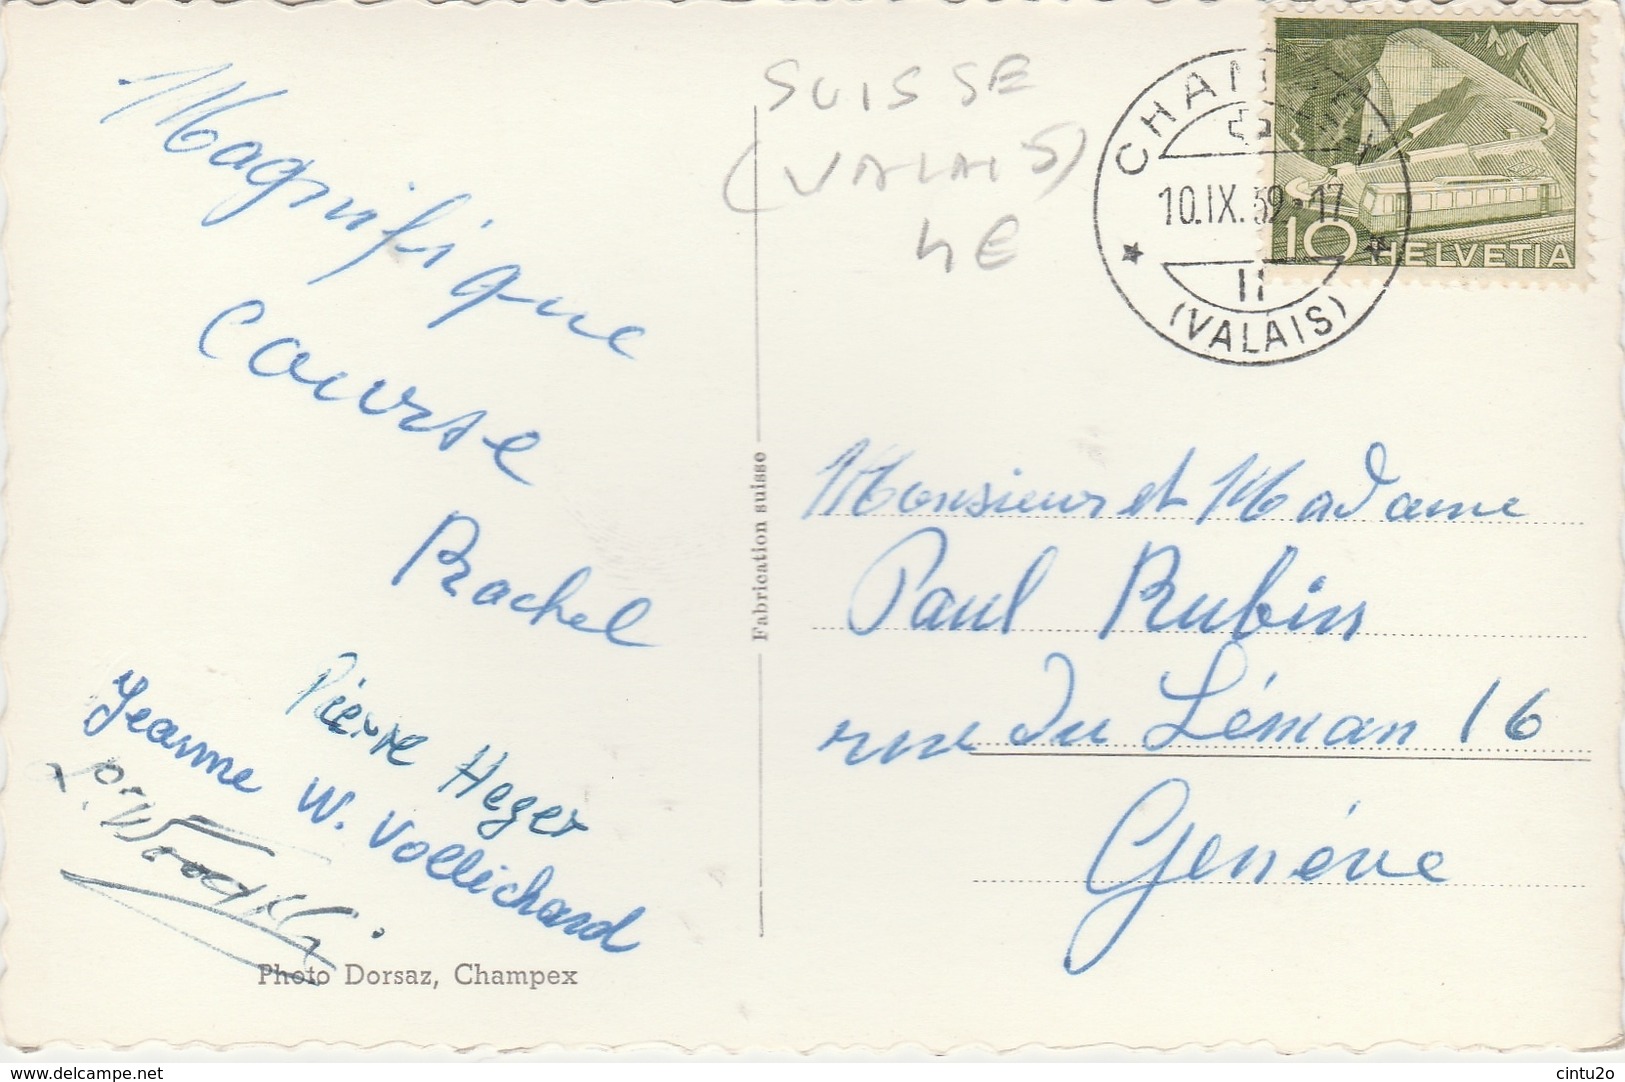 Magnifique
course
Rachel
Pierre Heger
Jeanne W. Vollichard
Photo Dorsaz, Champex
Fabrication suisse
SUISSE
(VALAIS)
4€
10.IX.59-17
11
(VALAIS)
10 HELVETIA
Monsieur et Madame
Paul Rubin
rue du Léman 16
Genève
www.delcampe.net
cintu2o